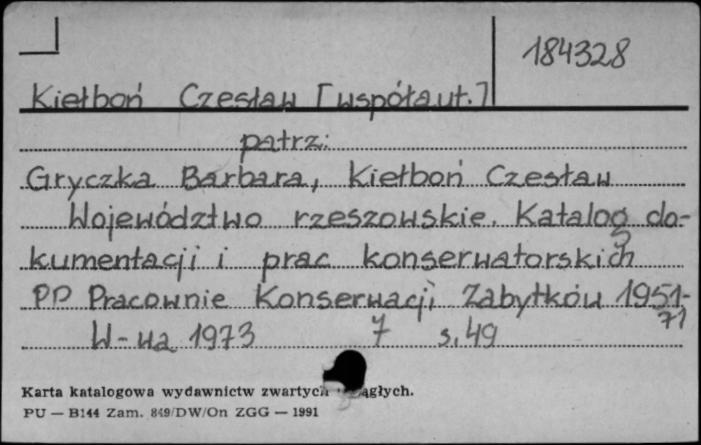 184328
Kiełboń Czesław [współaut.]
patrz:
Gryczka Barbara, Kiełboń Czesław
Województwo rzeszowskie. Katalog do-
kumentacji i prac konserwatorskich
PP Pracownie Konserwacji Zabytków 1951-
71
W-wa 1973 7 s. 49
Karta katalogowa wydawnictw zwartych ągłych.
PU — B144 Zam. 849/DW/On ZGG — 1991